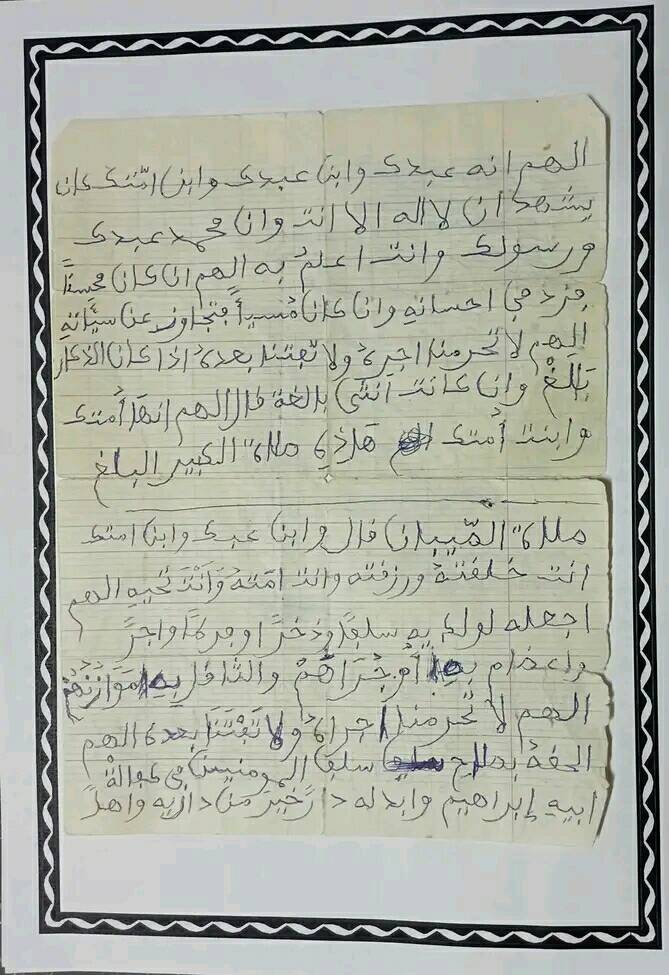 الهم انه عبدك وابن عبدك وابن امتك كان
يشهد ان لا اله الا انت وان محمد عبدك
ورسولك وانت اعلم به الهم ان كان محسناً
فزد في احسانه وان كان مُسيأ فتجاوز عن سيئاته
الهم لا تحرمنا اجره ولا تفتنا بعده اذا كان الذكار
بَلغْ وان كانت انثى بالغة قال الهم انها أمتك
وابنت أمتك هذي صلاة الكبير البلغ
صلاة الصّيبان قال وابن عبدك وابن امتك
انت خلقته ورزقته وانت امَته وَأنْتَ تُحيه الهم
اجعله لولديه سلفاً وذخراً وفرطاً واجرً
واعضام به أجُرَاهُمْ والثاقل به مَوَازنُهُمْ
الهم لا تحرمنا اجراه ولا تَفتنَا بعده الهم
الحقهُ بصلح سلف المومنين في كفالة
ابيه إبراهيم وابدله دارً خيرً من داريه واهلاً